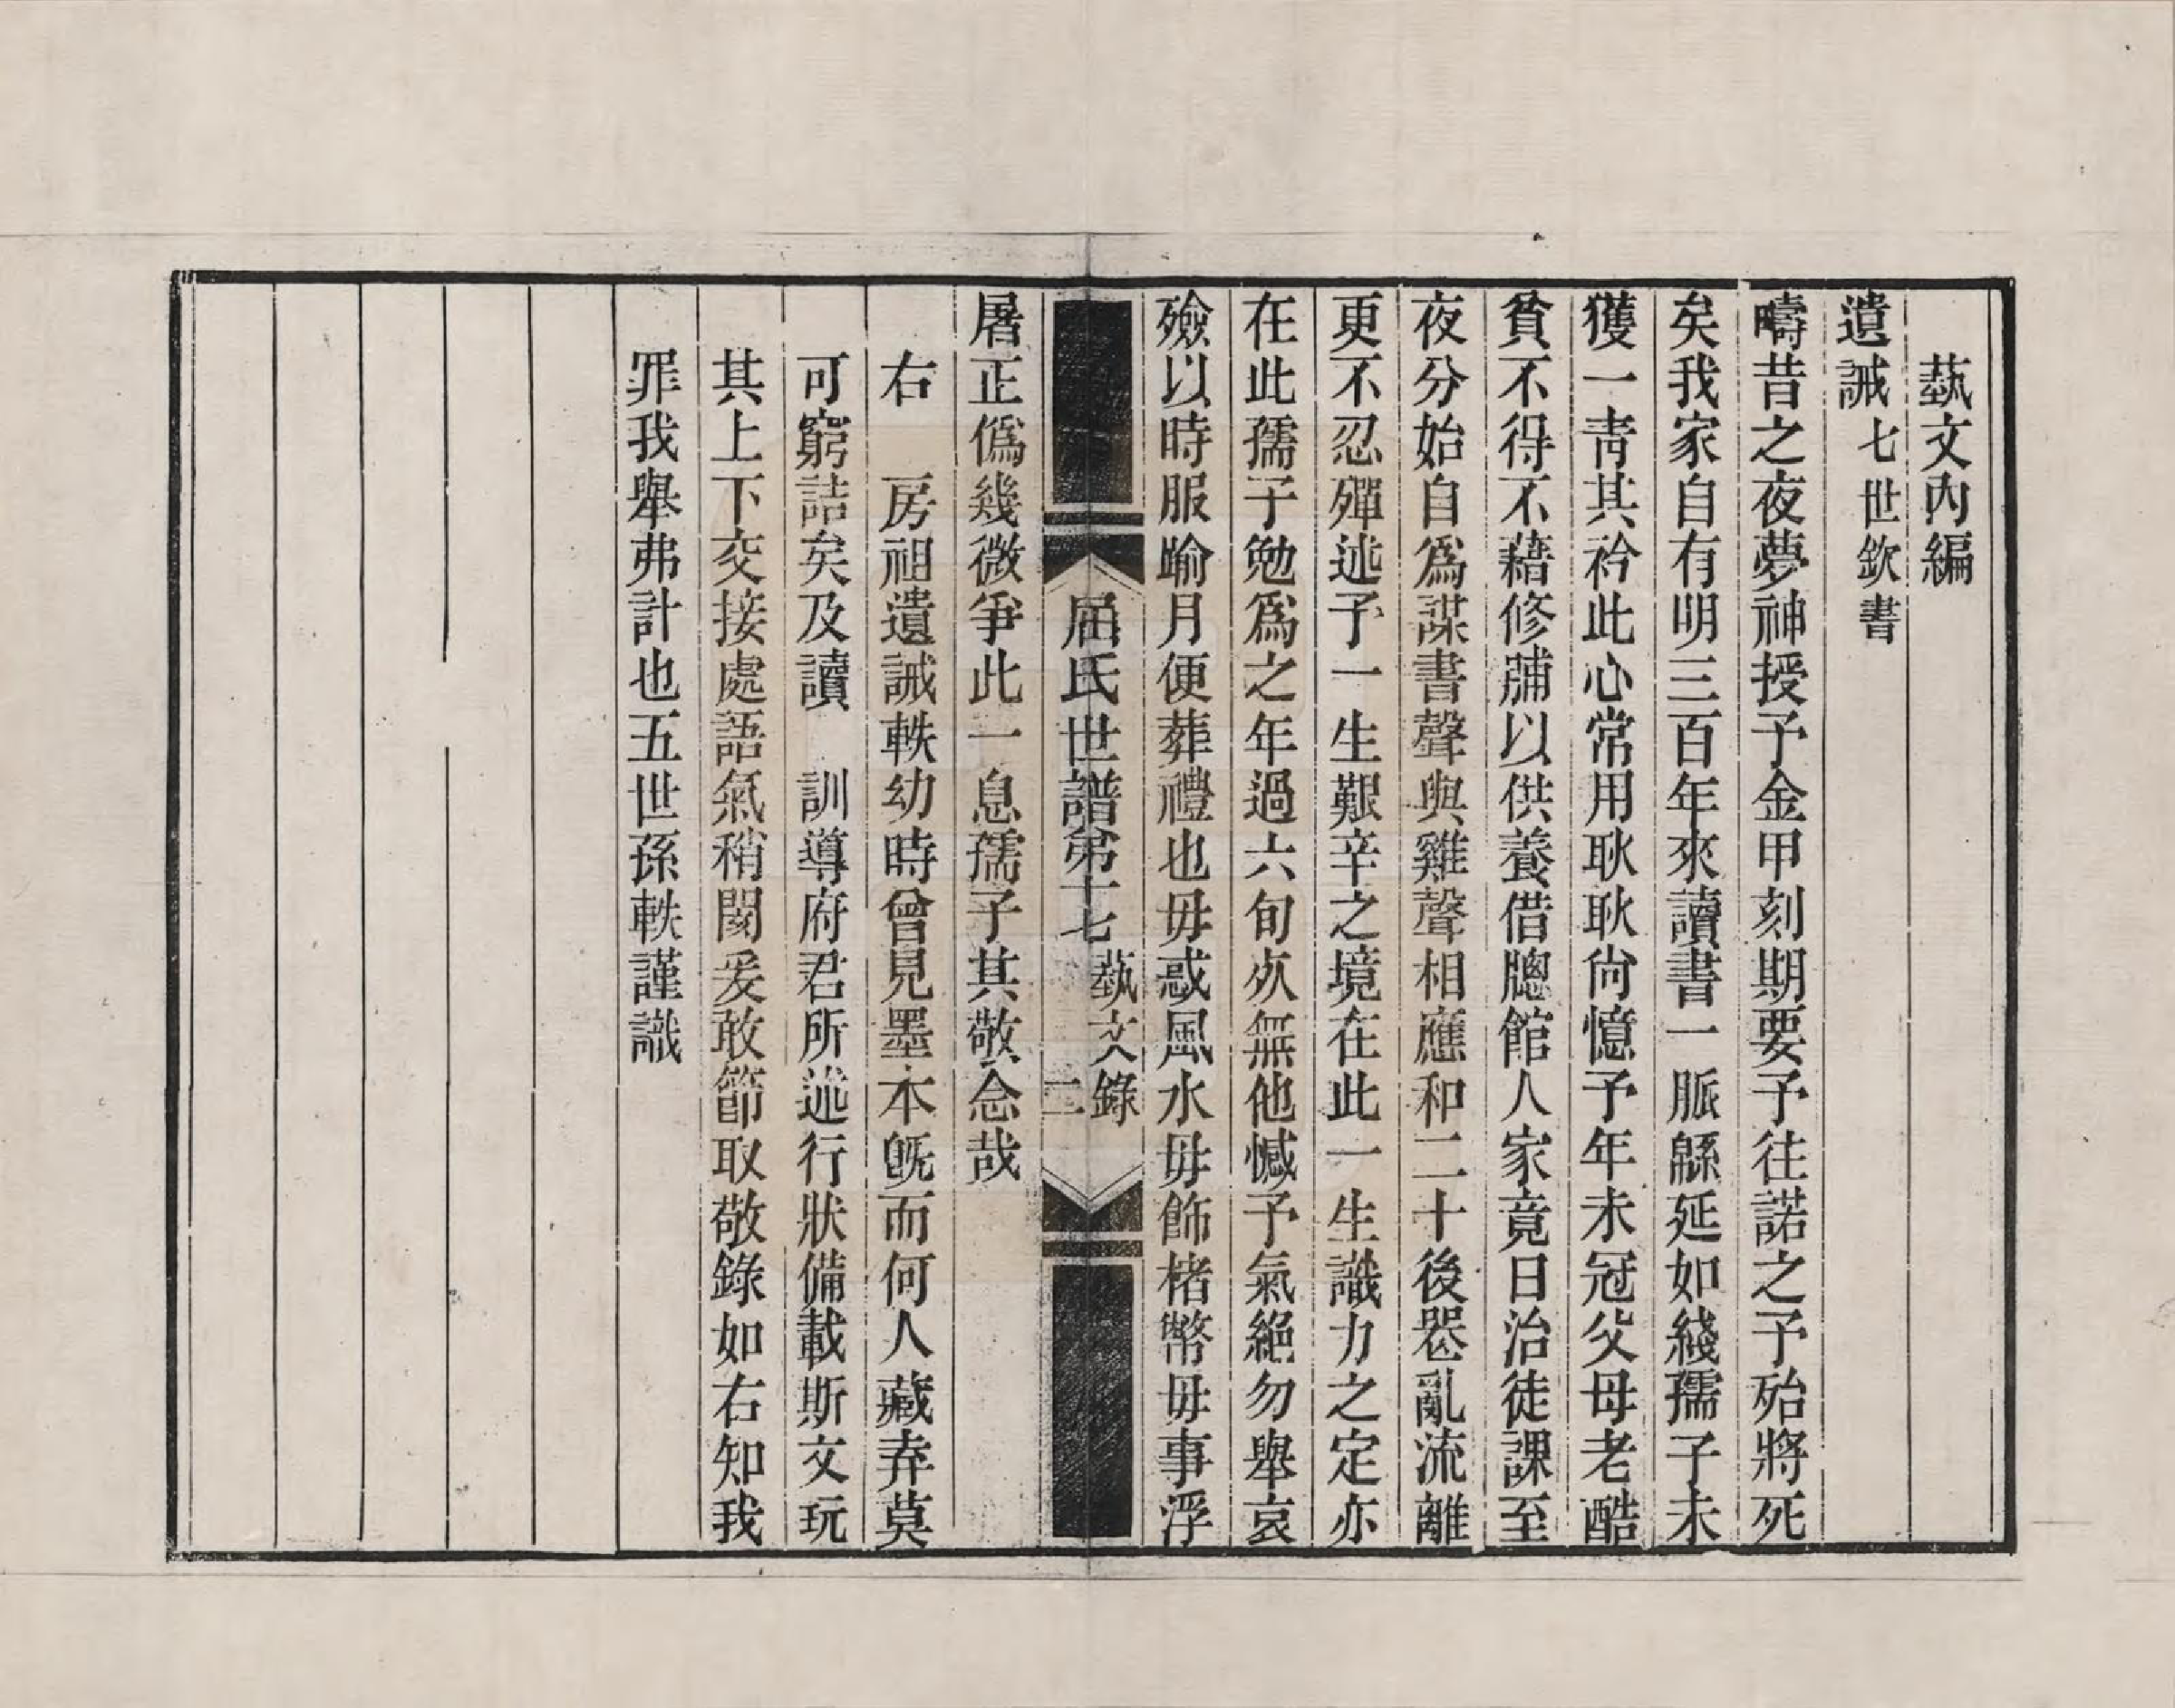 蓺文內編
遺誡七世欽書
疇昔之夜夢神授予金甲刻期要予往諾之予殆將死
矣我家自有明三百年來讀書一脈緜延如綫孺子未
獲一靑其衿此心常用耿耿尙憶予年未冠父母老酷
貧不得不藉修脯以供養借牕館人家竟日治徒課至
夜分始自爲謀書聲與雞聲相應和二十後罹亂流離
更不忍殫述予一生艱辛之境在此一生識力之定亦
在此孺子勉爲之年過六旬夾無他憾予氣絕勿舉哀
殮以時服踰月便葬禮也毋惑風水毋飾楮幣毋事浮
屠正僞幾微爭此一息孺子其敬念哉
屆氏世譜弟十七 蓺文錄 二
右 房祖遺誡軼幼時曾見墨本旣而何人藏弆莫
可窮詰矣及讀 訓導府君所述行狀備載斯文玩
其上下交接處語氣稍閡爰敢節取敬錄如右知我
罪我舉弗計也五世孫軼謹識